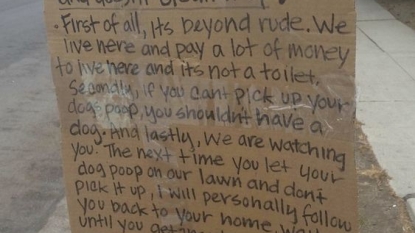 and doesn't
• First of all, its beyond rude. We
live here and pay a lot of money
to live here and its not a toilet.
Secondly, if you cant pick up your
dogs poop, you shouldn't have a
dog. And lastly, we are watching
you. The next time you let your
dog poop on our lawn and dont
pick it up, I will personally follow
you back to your home, wait
until you